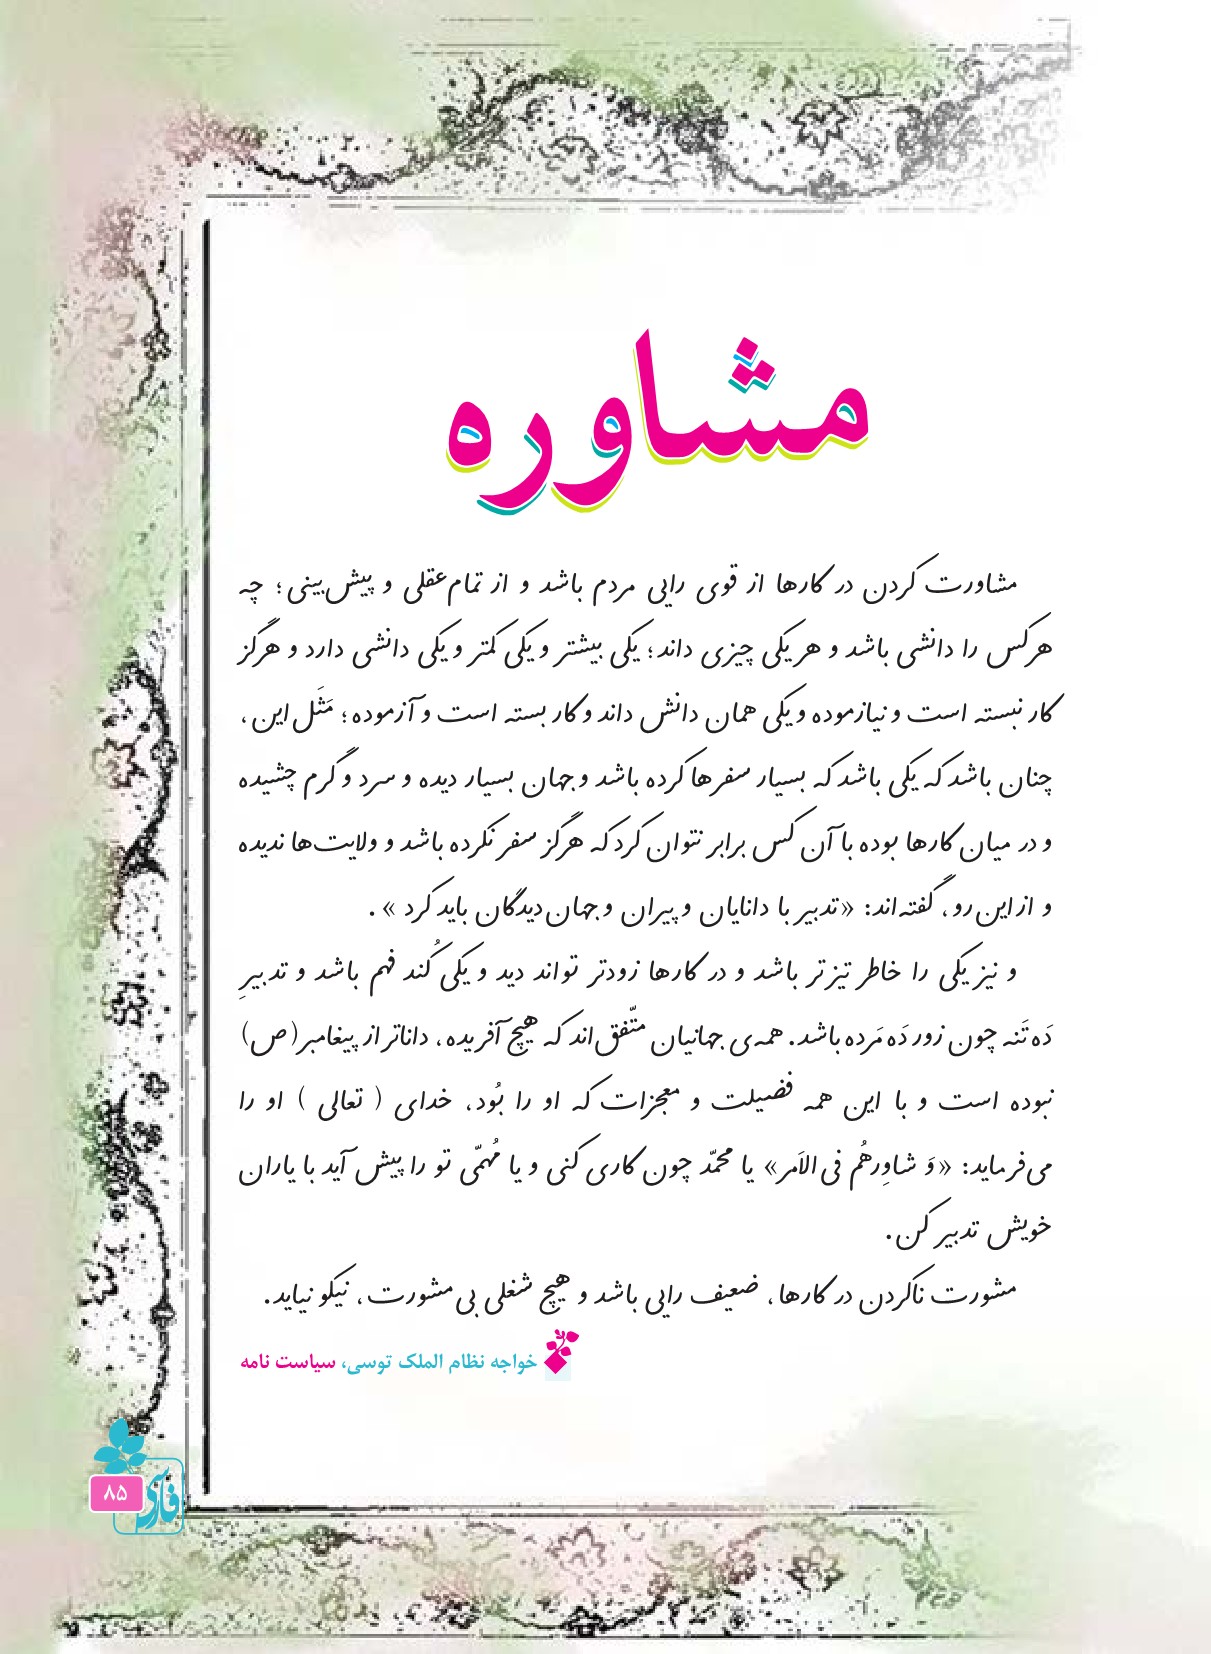 مشاوره
مشاورت کردن در کارها از قوی رایی مردم باشد و از تمام‌عقلی و پیش‌بینی؛ چه
هرکس را دانشی باشد و هریکی چیزی داند؛ یکی بیشتر و یکی کمتر و یکی دانشی دارد و هرگز
کار نبسته است و نیازموده و یکی همان دانش داند و کار بسته است و آزموده؛ مَثَل این،
چنان باشد که یکی باشد که بسیار سفرها کرده باشد و جهان بسیار دیده و سرد و گرم چشیده
و در میان کارها بوده با آن کس برابر نتوان کرد که هرگز سفر نکرده باشد و ولایت‌ها ندیده
و از این رو، گفته‌اند: «تدبیر با دانایان و پیران و جهان‌دیدگان باید کرد ».
و نیز یکی را خاطر تیزتر باشد و در کارها زودتر تواند دید و یکی کُند فهم باشد و تدبیرِ
دَه تَنه چون زور دَه مَرده باشد. همه‌ی جهانیان متّفق‌اند که هیچ آفریده، داناتر از پیغامبر(ص)
نبوده است و با این همه فضیلت و معجزات که او را بُود، خدای ( تعالی ) او را
می‌فرماید: «وَ شاوِرهُم فی الاَمر» یا محمّد چون کاری کنی و یا مُهمّی تو را پیش آید با یاران
خویش تدبیر کن.
مشورت ناکردن در کارها، ضعیف رایی باشد و هیچ شغلی بی‌مشورت، نیکو نیاید.
خواجه نظام الملک توسی، سیاست نامه
فارسی
۸۵